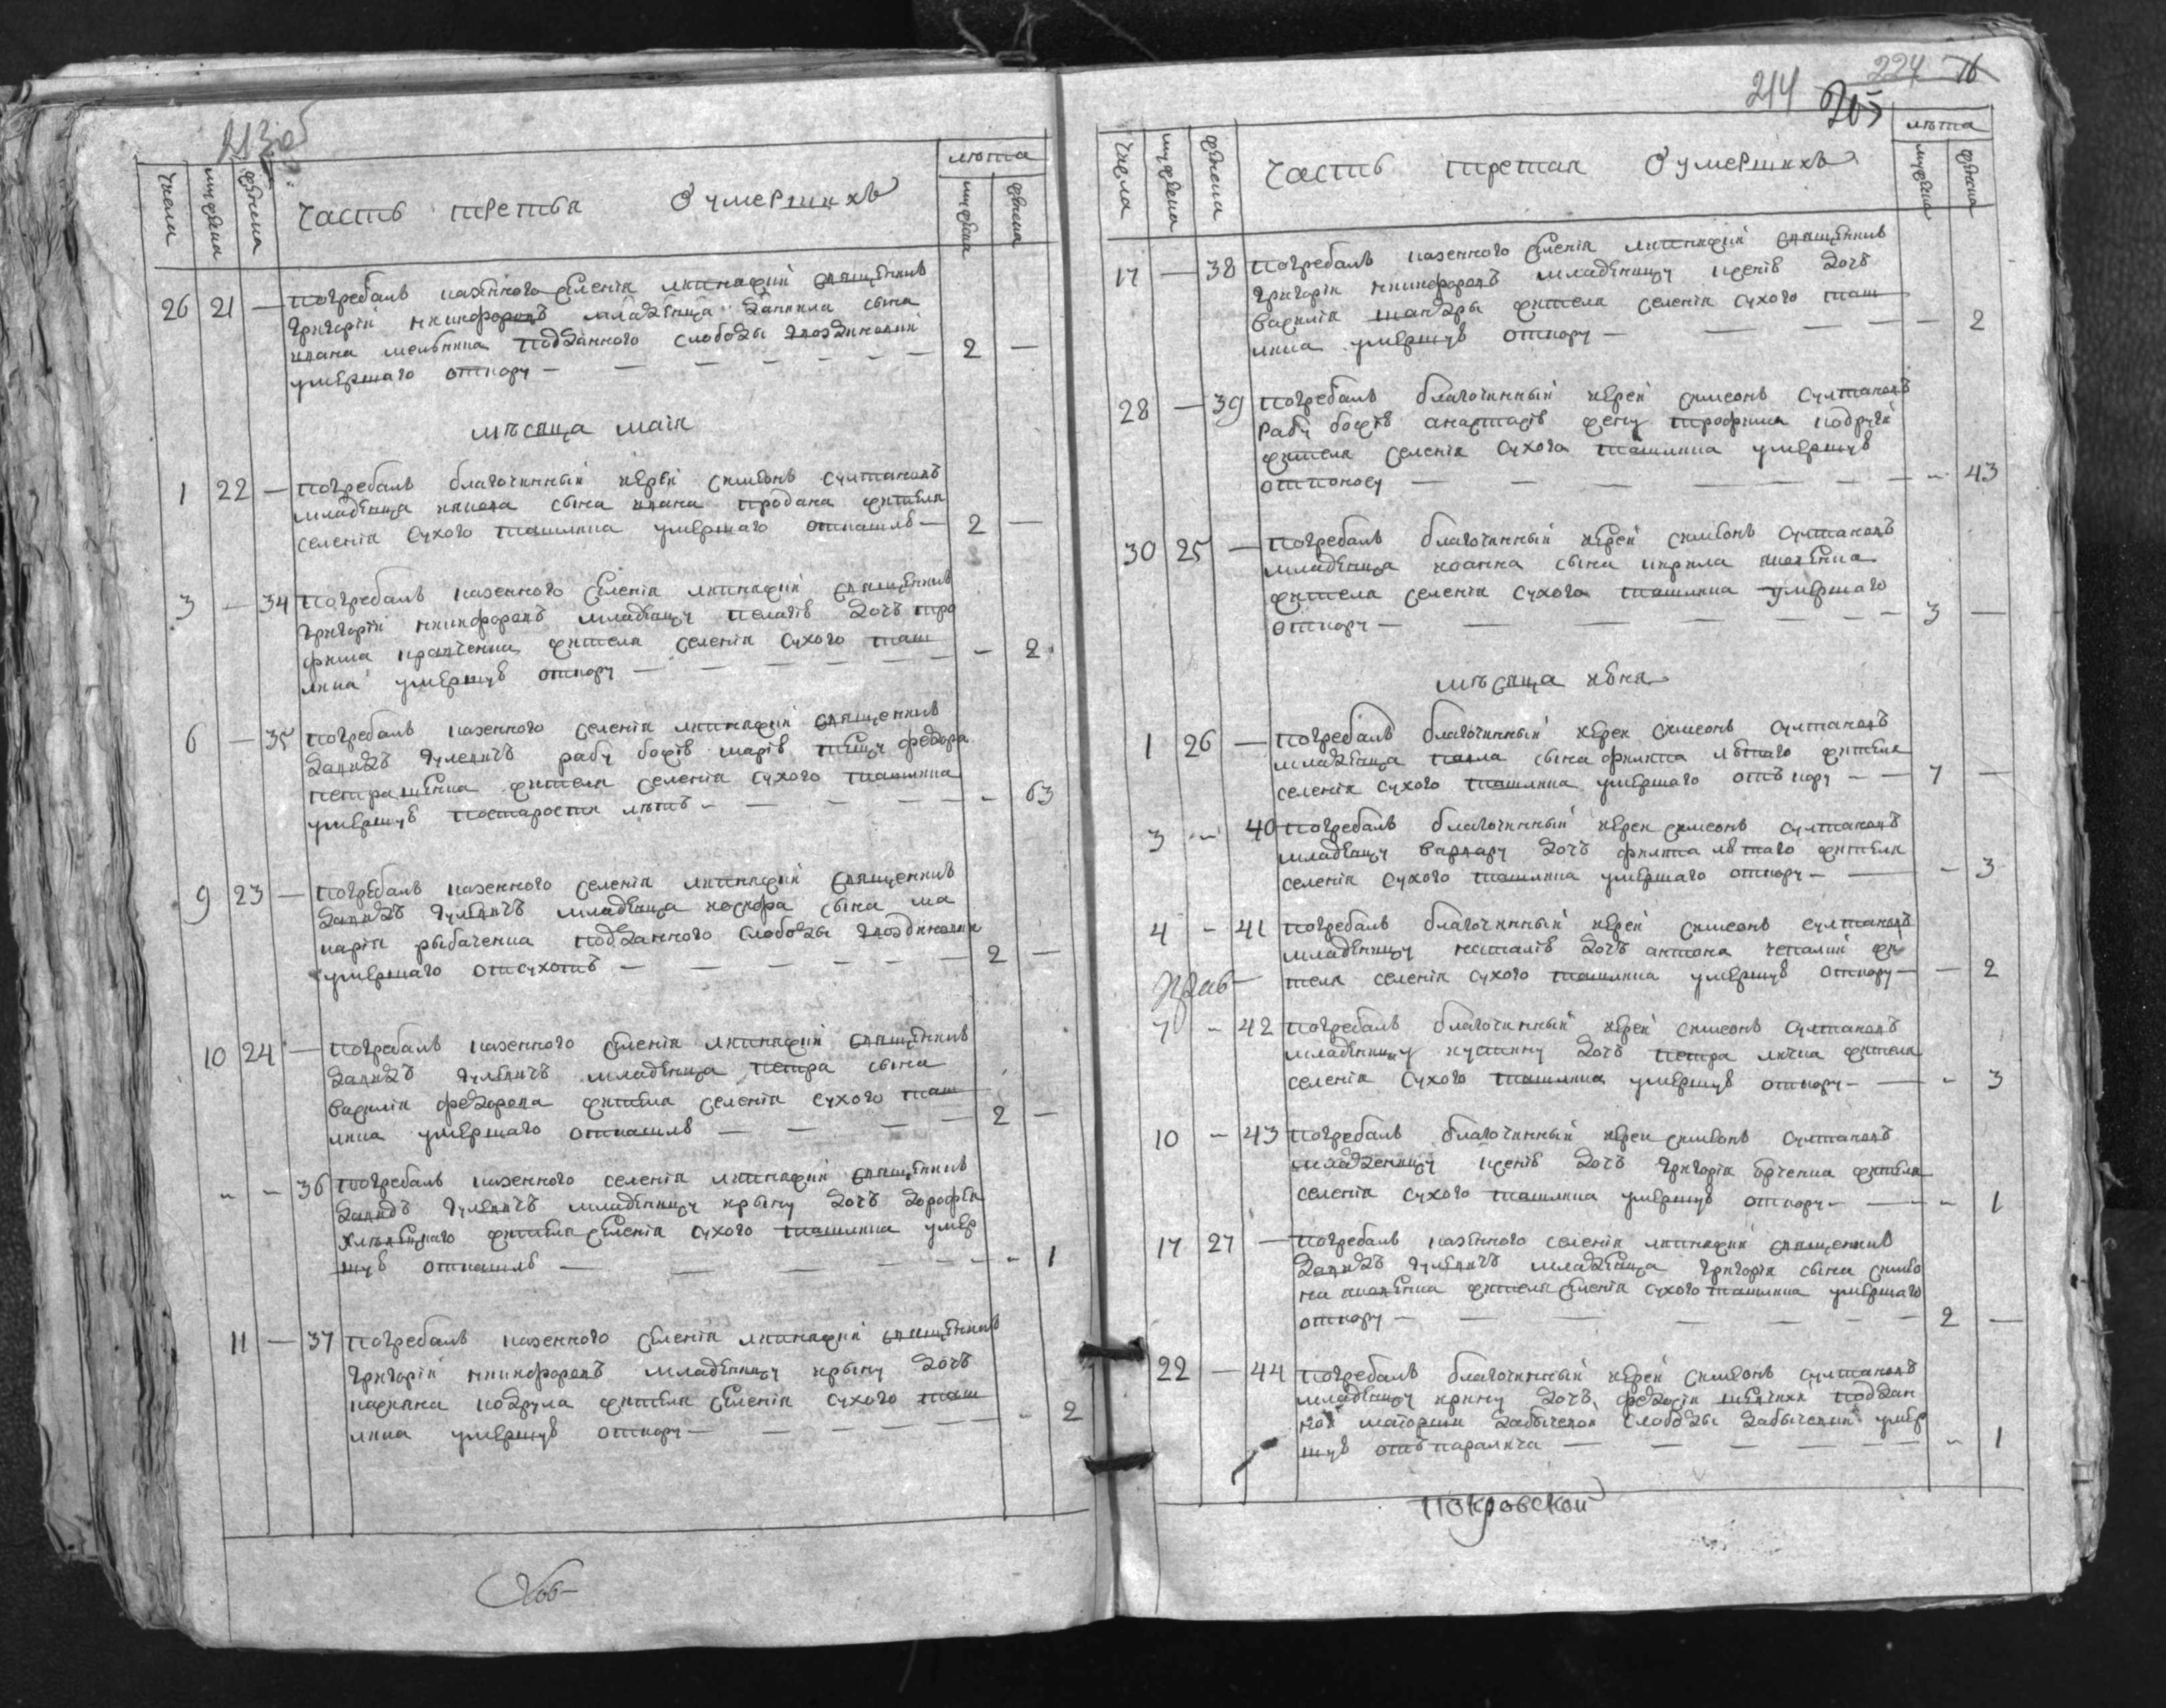 213 об
числа мужеска женска Часть третья О умершихъ лѣта мужеска женска
26 21 — Погребалъ казенного селенія священникъ
Григорій Никифоровъ младенца Даниила сына
ивана мельника подданного слободы
умершаго откору — 2 —
мѣсяца маія
1 22 — Погребалъ благочинный иерей симеонъ султановъ
младенца якова сына ивана продана жителя
селенія Сухого ташлика умершаго откашлю — 2 —
3 — 34 Погребалъ казенного селенія священникъ
Григорій Никифоровъ младеницу пелагію дочь тро
фима кравченка жителя селенія Сухого таш
лика умершую откору — — 2
6 — 35 Погребалъ казенного селенія священникъ
Давидъ Гулевичъ рабу божію марію тещу федора
петрашенка жителя селенія Сухого ташлика
умершую постарости лѣтъ — — 63
9 23 — Погребалъ казенного селенія священникъ
Давидъ Гулевичъ младенца иосифа сына ма
карія рыбаченка подданного Слободы
умершаго отсухотъ — 2 —
10 24 — Погребалъ казенного селенія священникъ
Давидъ Гулевичъ младенца петра сына
Василія федорова жителя селенія Сухого таш
лика умершаго откашлю — 2 —
— — 36 Погребалъ казенного селенія священникъ
Давидъ Гулевичъ младеницу ирыну дочь дорофея
жителя селенія Сухого ташлика умер
шую откашлю — — 1
11 — 37 Погребалъ казенного селенія священникъ
Григорій Никифоровъ младеницу ирыну дочь
касияна кодрула жителя селенія Сухого таш
лика умершую откору — — 2
214 205 224
числа мужеска женска Часть третая О умершихъ лѣта мужеска женска
17 — 38 Погребалъ казенного селенія священникъ
Григорій Никифоровъ младеницу ксенію дочь
Василія шандры жителя селенія Сухого таш
лика умершую откору — — 2
28 — 39 Погребалъ благочинный иерей симеонъ Султановъ
Рабу божію анастасію жену трофима
жителя селенія Сухого ташлика умершую
отпоносу — — 43
30 25 — Погребалъ благочинный иерей симеонъ Султановъ
младенца иоанна сына кирила
жителя селенія Сухого ташлика умершаго
откору — 3 —
мѣсяца июня
1 26 — Погребалъ благочинный иерей симеонъ Султановъ
младенца павла сына филипа лютаго жителя
селенія Сухого ташлика умершаго отъ кору — 7 —
3 — 40 Погребалъ благочинный иерей симеонъ Султановъ
младеницу Варвару дочь филипа лютаго жителя
селенія Сухого ташлика умершаго откору — — 3
4 — 41 Погребалъ благочинный иерей симеонъ Султановъ
младеницу наталію дочь антона жи
теля селенія Сухого ташлика умершую откору — — 2
7 — 42 Погребалъ благочинный иерей симеонъ Султановъ
младеницу иустину дочь петра жителя
селенія Сухого ташлика умершую откору — — 3
10 — 43 Погребалъ благочинный иерей симеонъ Султановъ
младеницу ксенію дочь Григорія жителя
селенія Сухого ташлика умершую откору — — 1
17 27 — Погребалъ казенного селенія священникъ
Давидъ Гулевичъ младенца Григорія сына симео
на жителя селенія Сухого ташлика умершаго
откору — 2 —
22 — 44 Погребалъ благочинный иерей симеонъ Султановъ
младеницу ирину дочь федосія поддан
ной маіорши Слободы умер
шую отъ паралича — — 1
Покровской